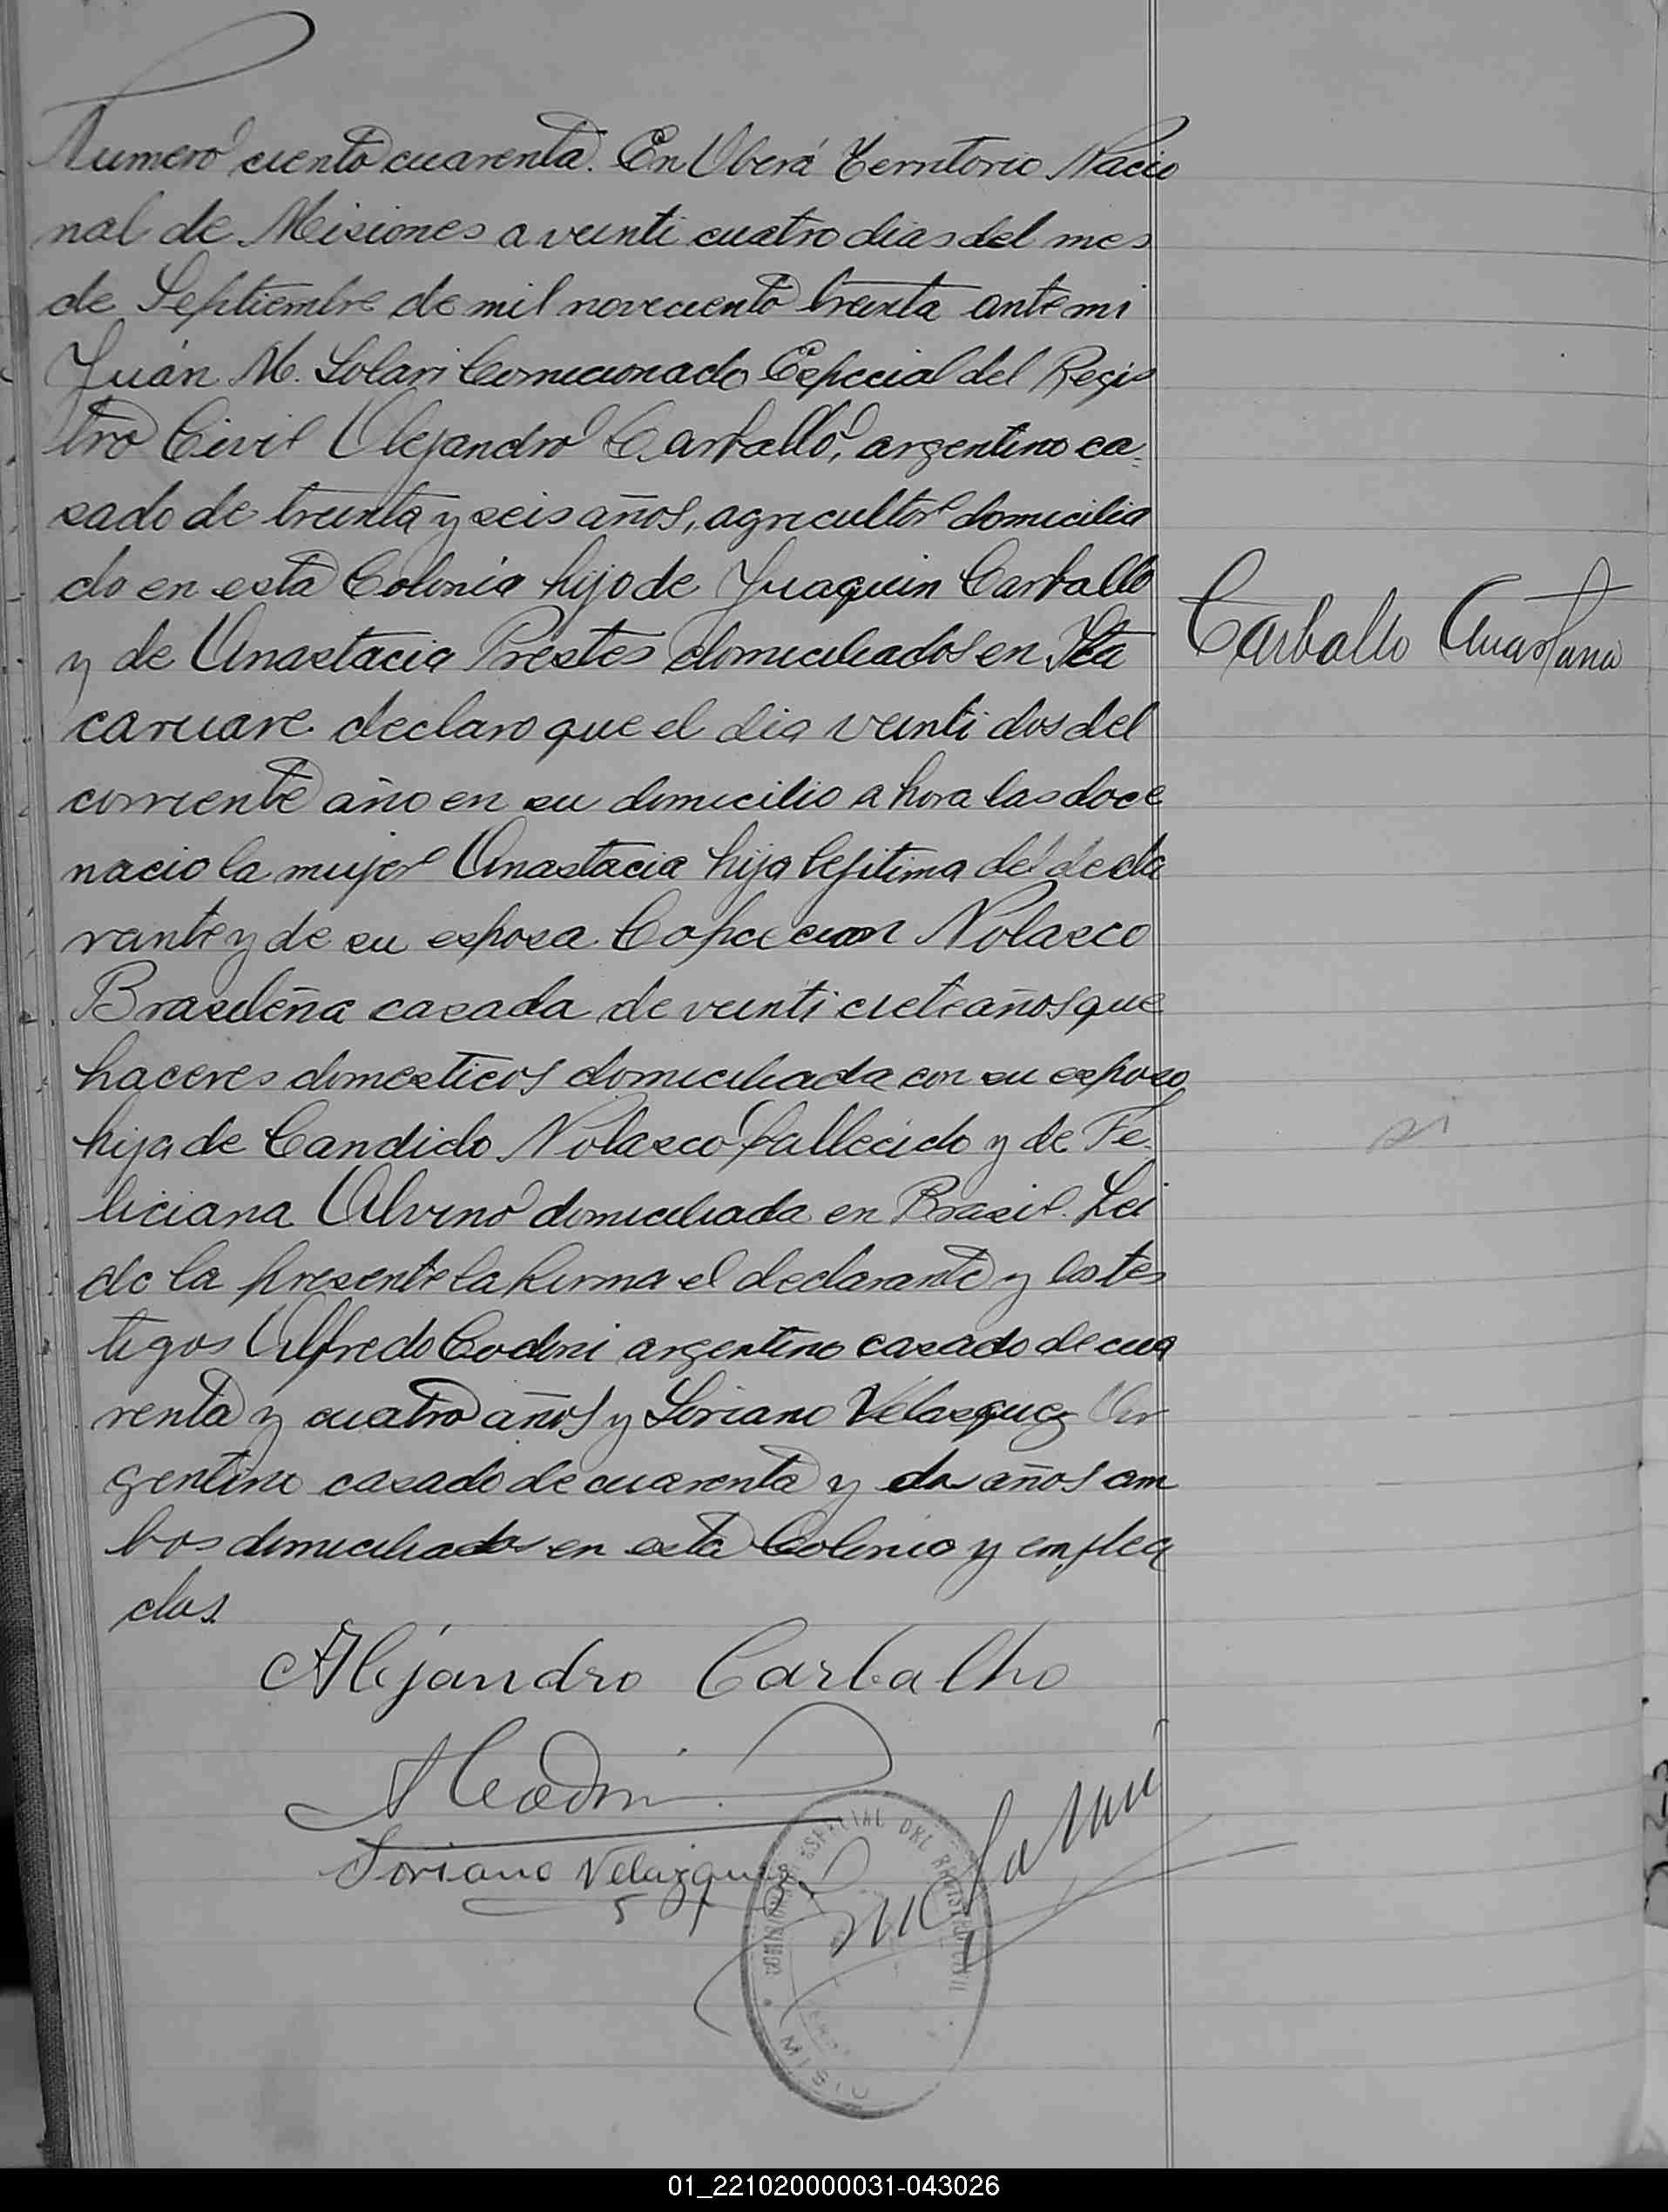 Numero ciento cuarenta. En Oberá Territorio Nacio
nal de Misiones a veinti cuatro dias del mes
de Septiembre de mil noveciento treinta ante mi
Juán M. Solari Comicionado Especial del Regis
tro Civil Alejandro Carballo, argentino ca-
sado de treinta y seis años, agricultor domicilia
do en esta Colonia hijo de Juaquin Carballo
y de Anastacia Prestes domiciliados en Ita
caruare declaro que el dia veinti dos del
corriente año en su domicilio a hora las doce
nacio la mujer Anastacia hija lejitima del decla
rante y de su esposa Nolasco
Brasileña casada de veinti ciete años que
haceres domesticos domiciliada con su esposo
hija de Candido Nolasco fallecido y de Fe-
liciana Alvino domiciliada en Brasil. Lei
do la presente la firma el declarante y los tes
tigos Alfredo Codoni argentino casado de cua
renta y cuatro años y Soriano Velasquez Ar
gentino casado de cuarenta y dos años am
bos domiciliados en esta Colonia y emplea
dos.
Carballo
si
Alejandro Carbalho
Soriano Velazquez
COMISIONADO ESPECIAL DEL REGISTRO CIVIL
01_221020000031-043026